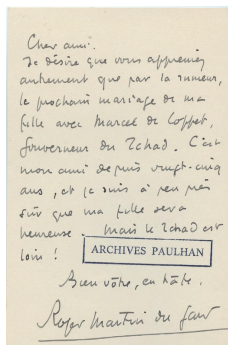 Cher ami.
Je désire que vous appreniez
autrement que par la rumeur,
le prochain mariage de ma
fille avec Marcel de Coppet,
Gouverneur du Tchad. C'est
mon ami depuis vingt-cinq
ans, et je suis à peu près
sûr que ma fille sera
heureuse. Mais le Tchad est
loin !
ARCHIVES PAULHAN
Bien vôtre, en hâte.
Roger Martin du Gard